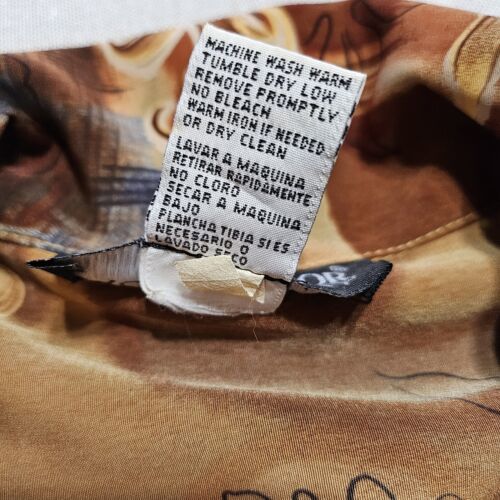 MACHINE WASH WARM
TUMBLE DRY LOW
REMOVE PROMPTLY
NO BLEACH
WARM IRON IF NEEDED
OR DRY CLEAN
LAVAR A MAQUINA
RETIRAR RAPIDAMENTE
NO CLORO
SECAR A MAQUINA
BAJO
PLANCHA TIBIA SI ES
NECESARIO O
LAVADO SECO